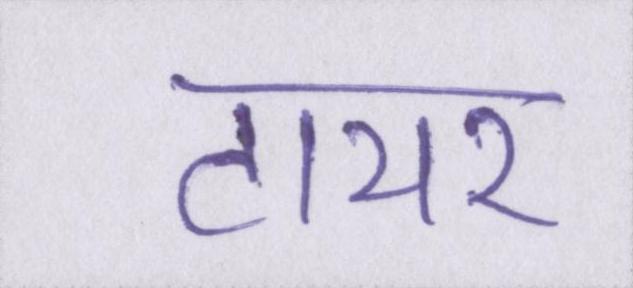 टायर